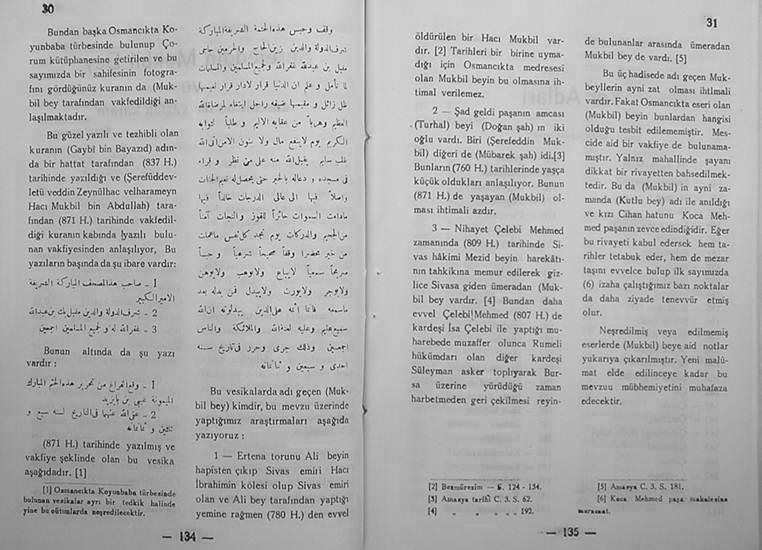 30
Bundan başka Osmancıkta Ko-
yunbaba türbesinde bulunup Ço-
rum kütüphanesine getirilen ve bu
sayımızda bir sahifesinin fotografı-
nı gördüğünüz kuranın da (Muk-
bil bey tarafından vakfedildiği an-
laşılmaktadır.
Bu güzel yazılı ve tezhibli olan
kuranın (Gaybî bin Bayazıd) adın-
da bir hattat tarafından (837 H.)
tarihinde yazıldığı ve (Şerefüddev-
letü veddin Zeynülhac velharameyn
Hacı Mukbil bin Abdullah) tara-
fından (871 H.) tarihinde vakfedil-
diği kuranın kabında yazılı bulu-
nan vakfiyesinden anlaşılıyor, Bu
yazıların başında da şu ibare vardır:
1 - صاحب هذا المصحف المباركة الشريفة
الامير الكبير
2 - شرف الدولة والدين مقبل بك بن عبدالله
3 - غفرالله له و لجميع المسلمين اجمعين
Bunun altında da şu yazı
vardır :
1 - وقع الفراغ من تحرير هذه الختم المبارك
الميمونة غيبى بن بايزيد
2 - عفى الله عنهما فى التاريخ لسنه سبع و
ثلثين و ثمانمائه
(871 H.) tarihinde yazılmış ve
vakfiye şeklinde olan bu vesika
aşağıdadır. [1]
[1] Osmancıkta Koyunbaba türbesinde
bulunan vesikalar ayrı bir tedkik halinde
yine bu sütunlarda neşredilecektir.
وقف وحبس هذه الختمة الشريفة المباركة
شرف الدولة والدين زين الحاج والحرمين حاجى
مقبل بن عبدالله غفرالله و لجميع المسلمين والمسلمات
لما تأمل و علم ان الدنيا قرار لادار قرار نعيمها
ظل زائل و مقيمها ضيف راحل ابتغاء لمرضاةالله
العظيم وهربا من عقابه الاليم و طلباً لثوابه
الكريم يوم لاينفع مال ولا بنون الامن اتى الله
بقلب سليم
اجمعين وذلك جرى وحرر فى تاريخ سنه
احدى و سبعين و ثمانمائه
Bu vesikalarda adı geçen (Muk-
bil bey) kimdir, bu mevzu üzerinde
yaptığımız araştırmaları aşağıda
yazıyoruz :
1 — Ertena torunu Ali beyin
hapisten çıkıp Sivas emiri Hacı
İbrahimin kölesi olup Sivas emiri
olan ve Ali bey tarafından yaptığı
yemine rağmen (780 H.) den evvel
— 134 —
31
öldürülen bir Hacı Mukbil var-
dır. [2] Tarihleri bir birine uyma-
dığı için Osmancıkta medresesi
olan Mukbil beyin bu olmasına ih-
timal verilemez.
2 — Şad geldi paşanın amcası
(Turhal) beyi (Doğan şah) ın iki
oğlu vardı. Biri (Şerefeddin Muk-
bil) diğeri de (Mübarek şah) idi.[3]
Bunların (760 H.) tarihlerinde yaşça
küçük oldukları anlaşılıyor. Bunun
(871 H.) de yaşayan (Mukbil) ol-
ması ihtimali azdır.
3 — Nihayet Çelebi Mehmed
zamanında (809 H.) tarihinde Si-
vas hâkimi Mezid beyin harekâtı-
nın tahkikına memur edilerek giz-
lice Sivasa giden ümeradan (Muk-
bil bey vardır. [4] Bundan daha
evvel Çelebi Mehmed (807 H.) de
kardeşi İsa Çelebi ile yaptığı mu-
harebede muzaffer olunca Rumeli
hükümdarı olan diğer kardeşi
Süleyman asker toplıyarak Bur-
sa üzerine yürüdüğü zaman
harbetmeden geri çekilmesi reyin-
[2] Bezmürezim — S. 124 - 134.
[3] Amasya tarihî C. 3. S. 62.
[4] „ „ „ „ 192.
de bulunanlar arasında ümeradan
Mukbil bey de vardı. [5]
Bu üç hadisede adı geçen Muk-
beyllerin ayni zat olması ihtimali
vardır. Fakat Osmancıkta eseri olan
(Mukbil) beyin bunlardan hangisi
olduğu tesbit edilememiştir. Mes-
cide aid bir vakfiye de bulunama-
mıştır. Yalnız mahallinde şayanı
dikkat bir rivayetten bahsedilmek-
tedir. Bu da (Mukbil) in ayni za-
manda (Kutlu bey) adı ile anıldığı
ve kızı Cihan hatunu Koca Meh-
med paşanın zevce edindiğidir. Eğer
bu rivayeti kabul edersek hem ta-
rihler tetabuk eder, hem de mezar
taşını evvelce bulup ilk sayımızda
(6) izaha çalıştığımız bazı noktalar
da daha ziyade tenevvür etmiş
olur.
Neşredilmiş veya edilmemiş
eserlerde (Mukbil) beye aid notlar
yukarıya çıkarılmıştır. Yeni malû-
mat elde edilinceye kadar bu
mevzuu mübhemiyetini muhafaza
edecektir.
[5] Amasya C. 3. S. 181.
[6] Koca Mehmed paşa makalesine
muracaat.
— 135 —